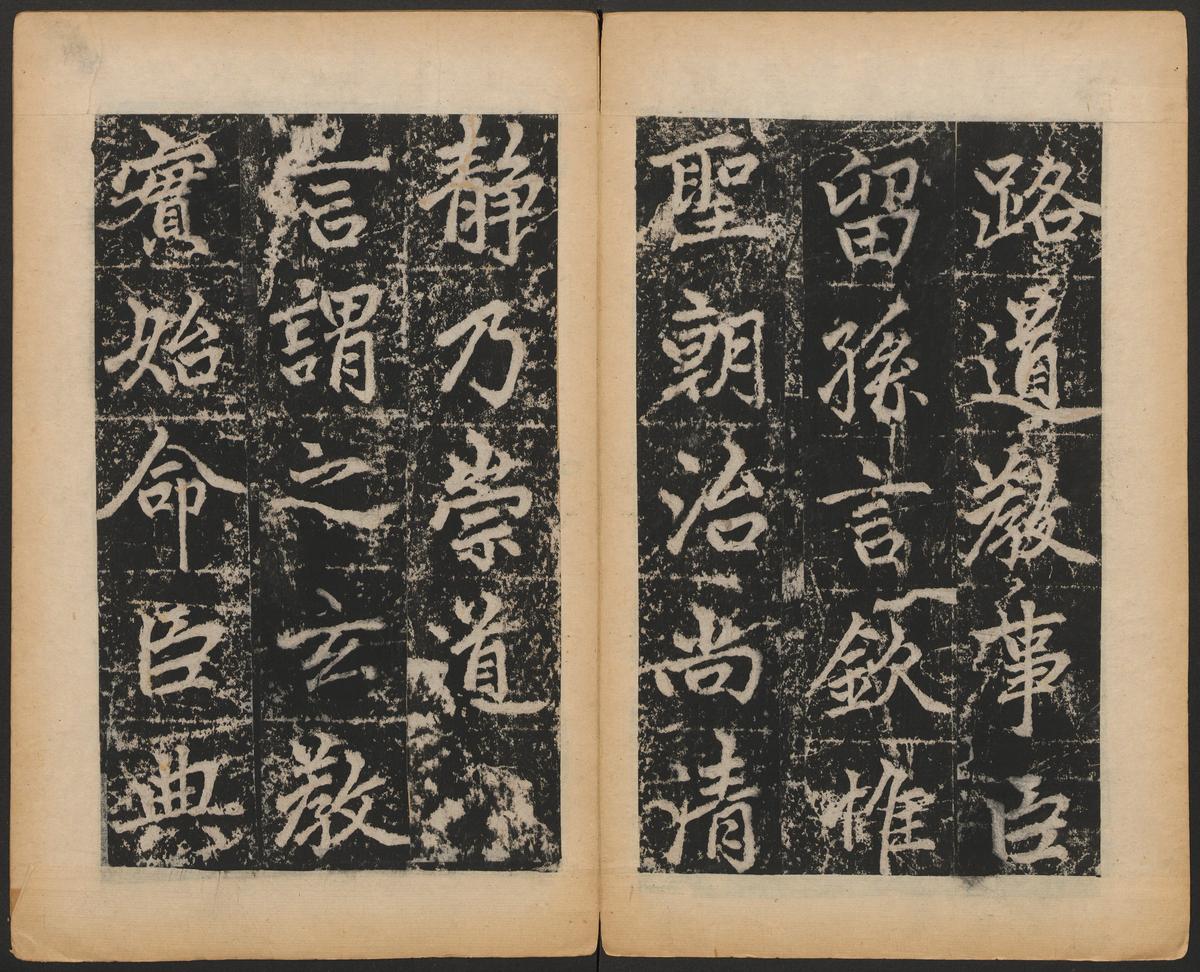 路道教事臣
留孫言欽惟
聖朝治尚清
静乃崇道
言謂之玄教
實始命臣典